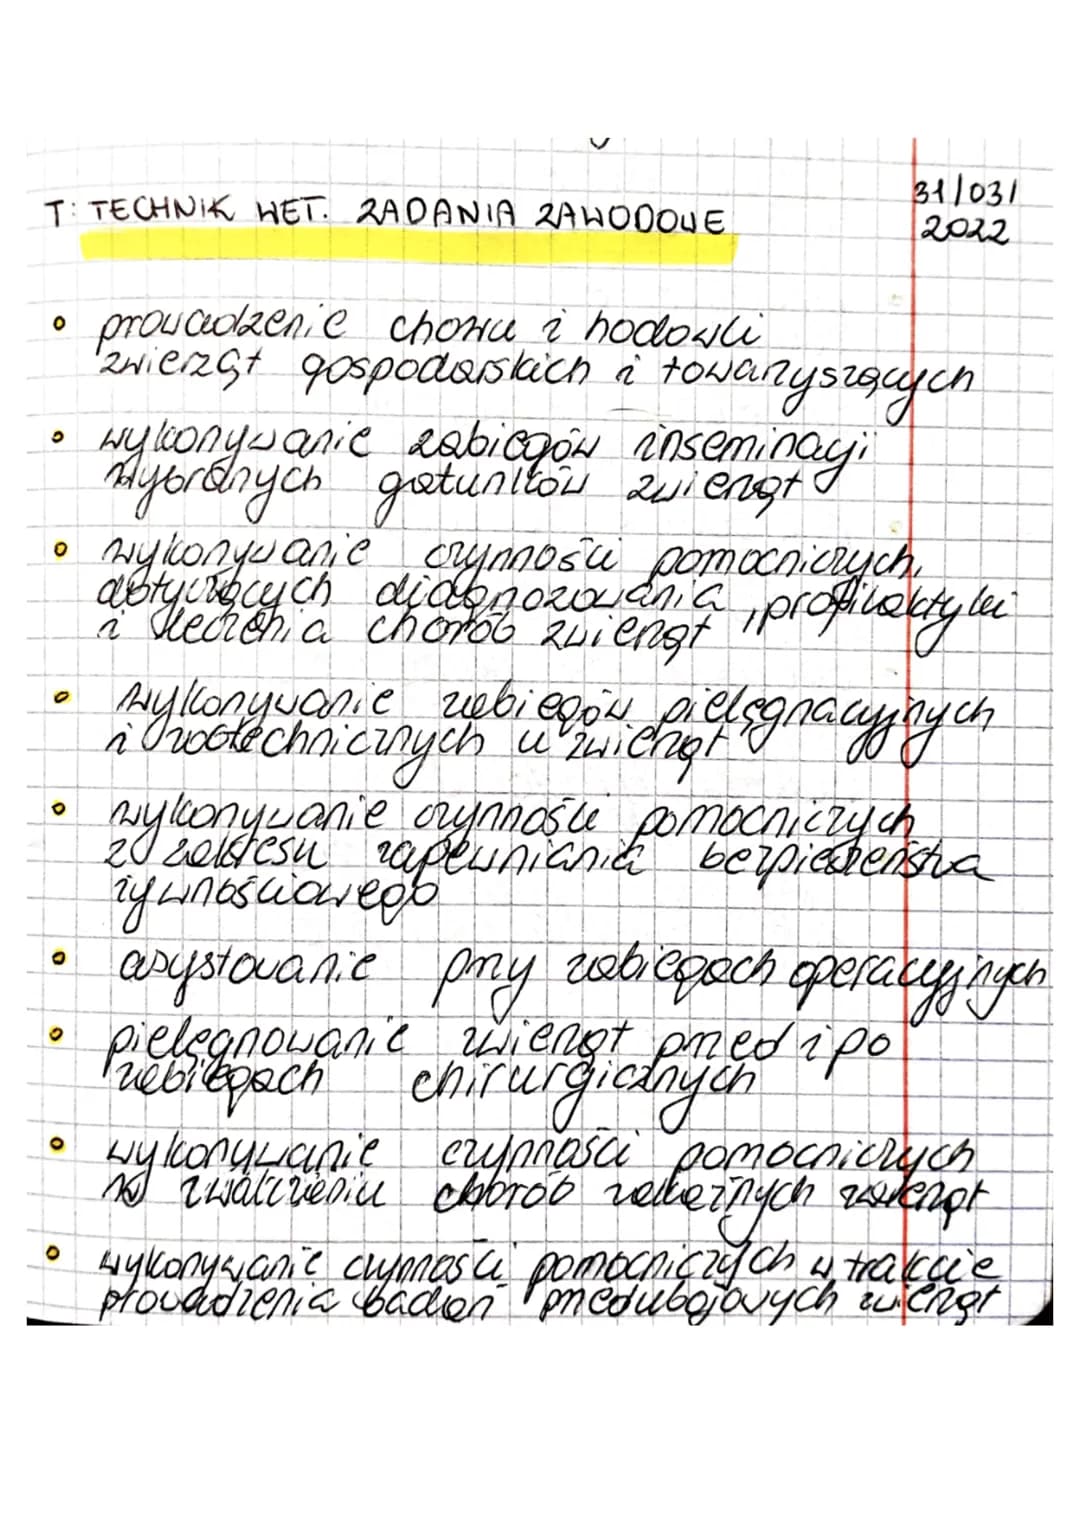 T: TECHNIK WET. ZADANIA ZAWODOWE
31/03/
2022
prowadzenie chowu i hodowli
zwierząt gospodarskich i towarzyszących
wykonywanie zabiegów inseminacji
wybranych gatunków zwierząt
wykonywanie czynności pomocniczych,
dotyczących diagnozowania, profilaktyki
i leczenia chorób zwierząt
wykonywanie zabiegów pielęgnacyjnych
i zootechnicznych u zwierząt
wykonywanie czynności pomocniczych
z zakresu zapewniania bezpieczeństwa
żywnościowego
asystowanie przy zabiegach operacyjnych
pielęgnowanie zwierząt przed i po
zabiegach chirurgicznych
wykonywanie czynności pomocniczych
w zwalczaniu chorób zakaźnych zwierząt
wykonywanie czynności pomocniczych w trakcie
prowadzenia badań przedubojowych zwierząt